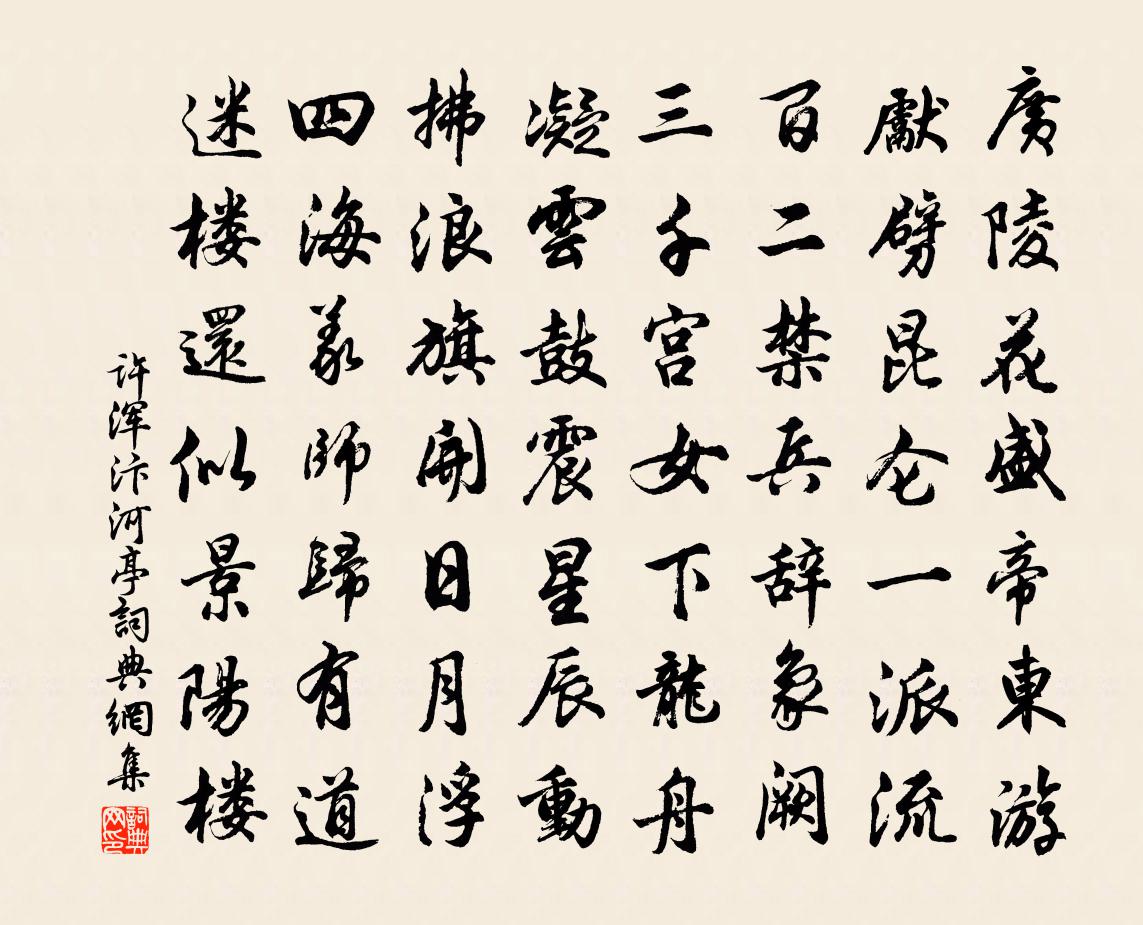 廣陵花盛帝東游
獻劈昆仑一派流
百二禁兵辞象阙
三千宫女下龍舟
凝雲鼓震星辰動
拂浪旗開日月浮
四海義師歸有道
迷楼還似景陽楼
许浑汴河亭詞典網集
詞典网印